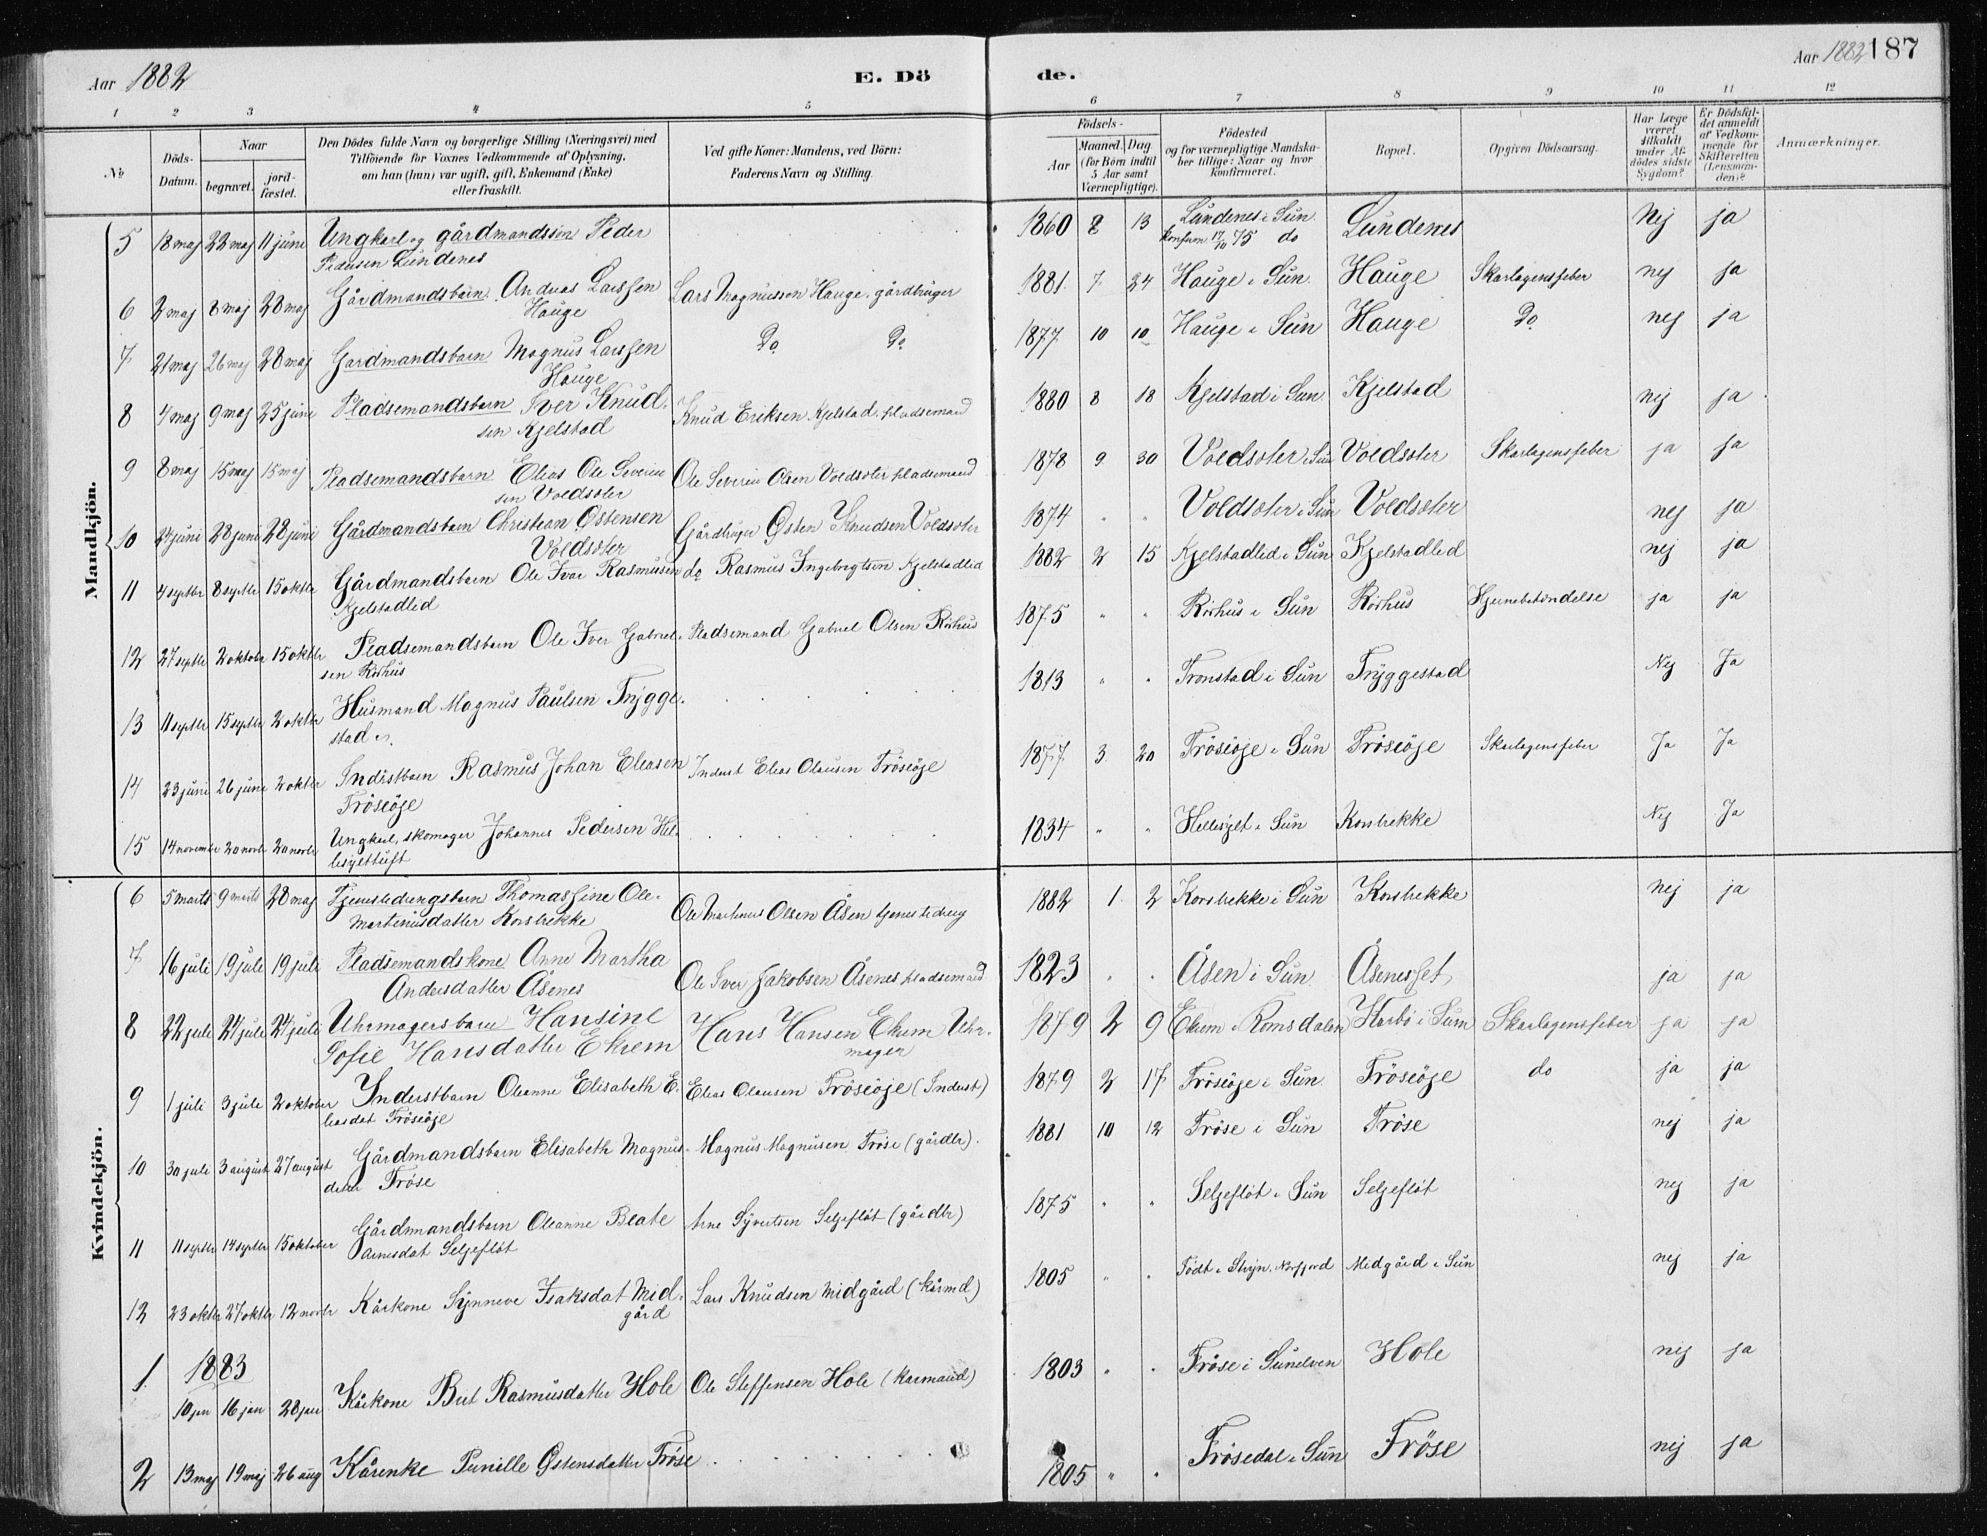 Aar 1882
E. Dö
de.
Aar 1882 187
1 2 3 4 5 6 7 8 9 10 11 12
No
Döds-Datum.
Naar
begravet.
jord-fæstet.
Den Dödes fulde Navn og borgerlige Stilling (Næringsvei) med
Tilföiende for Voxnes Vedkommende af Oplysning,
om han (hun) var ugift, gift, Enkemand (Enke)
eller fraskilt.
Ved gifte Koner: Mandens, ved Börn:
Faderens Navn og Stilling.
Födsels-
Aar
Maaned. Dag
(for Börn indtil
5 Aar samt
Værnepligtige).
Födested
og for værnepligtige Mandska-
ber tillige: Naar og hvor
konfirmeret.
Bopæl.
Opgiven Dödsaarsag.
Har Læge
været
tilkaldt
under Af-
dödes sidste
Sygdom?
Er Dödsfal-
det anmeldt
af Vedkom-
mende for
Skifteretten
(Lensman-
den)?
Anmærkninger.
Mandkjön.
5 18 maj 22 maj 11 juni Ungkarl og gårdmandssön Peder 1860 8 13 Lundenes i Sun. Lundenes Nej ja
Pedersen Lundenes konferm 17/10 75 do
6 2 maj 8 maj 28 maj Gårdmandsbarn Andreas Larssen Lars Magnusson Hauge. gårdbruger 1881. 7 24 Hauge i Sun. Hauge Skarlagensfeber nej ja
Hauge
7 21 maj 26 maj 28 maj Gardmandsbarn Magnus Larssen Do Do 1877 10 10 Hauge i Sun Hauge Do nej ja
Hauge
8 4 maj 9 maj 25 june Pladsemandsbarn Iver Knud- Knud Eriksen Kjelstad, pladsemand 1880 8 18 Kjelstad i Sun. Kjelstad nej ja
sen Kjelstad
9 8 maj 15 maj 15 maj Pladsemandsbarn Elias Ole Severin Ole Severin Olsen Voldsæter pladsemand 1878 9 30 Voldsæter i Sun Voldsæter Skarlagensfeber ja ja
sen Voldsæter
10 24 juni 28 juni 28 juni Gårdmandsbarn Christian Østensen Gårdbruger Østen Knudsen Voldsæter 1874 " " Voldsæter i Sun Voldsæter nej ja
Voldsæter
11 4 septbr 8 septbr 15 oktbr Gårdmandsbarn Ole Ivar Rasmusen do Rasmus Ingebrigtsen Kjelstadlid 1882 2 15 Kjelstadlid i Sun Kjelstadlid nej ja
Kjelstadlid
12 27 septbr 2 oktober 15 oktbr Pladsemandsbarn Ole Iver Gabriel- Pladsemand Gabriel Olsen Rörhus 1875 " " Rörhus i Sun Rörhus Hjernebetændelse ja ja
sen Rörhus
13 11 septbr 15 septbr 2 oktbr Husmand Magnus Paulsen Trygge- 1813 " " Tronstad i Sun Tryggestad Nej Ja
stad
14 23 juni 26 juni 2 oktbr Inderstbarn Rasmus Johan Eleasen Inderst Elias Olausen Fröseöje 1877 3. 20 Fröseöje i Sun Fröseöje Skarlagensfeber Ja Ja
Fröseöje
15 14 november 20 novbr 20 novbr Ungkarl, skomager Johannes Pedersen Hel- 1834 " " Hellesylt i Sun Korsbrekke Nej Ja
lesylttuft
Kvindekjön.
6 5 marts 9 marts 28 maj Tjenestedrengsbarn Thomassine Ole- Ole Martinus Olsen Åsen tjenestedreng 1882 1. 2 Korsbrekke i Sun Korsbrekke nej ja
Martinusdatter Korsbrekke
7 16 juli 19 juli 19 juli Pladsemandskone Anne Martha Ole Iver Jakobsen Åsenes pladsemand 1823 " " Åsen i Sun. Åsenesset ja ja
Andersdatter Åsenes
8 22 juli 24 juli 24 juli Uhrmagersbarn Hansine Hans Hansen Ekrem Uhr- 1879 2 9 Ekrem i Romsdalen Harbö i Sun Skarlagensfeber ja ja
Sofie Hansdatter Ekrem mager
9 1 juli 3 juli 2 oktober Inderstbarn Oleanne Elisabeth E- Elias Olausen Fröseöje (Inderst) 1879 2 17 Fröseöje i Sun. Fröseöje do ja ja
liasdat Fröseöje
10 30 juli 3 august 27 august Gårdmandsbarn Elisabeth Magnus- Magnus Magnusen Fröse (gårdbr). 1881 10 12 Fröse i Sun Fröse nej ja
datter Fröse
11 11 septbr 14 septbr 15 oktober Gårdmandsbarn Oleanne Beate Arne Syvertsen Seljeflöt (gårdbr) 1875 " " Seljeflöt i Sun Seljeflöt nej ja
Arnesdat Seljeflöt
12 23 oktbr 27 oktbr 12 novbr Kårkone Synneve Isaksdat Mid- Lars Knudsen Midgård (kårmd) 1805 " " Födt i Stryn. Norfjord Midgård i Sun nej ja
gård
1883
1. 10 jan 16 jan 28 jan Kårkone Brit Rasmusdatter Hole Ole Steffensen Hole (karmand) 1803 " " Fröse i Sunelven Hole nej ja
2 13 maj 19 maj 26 aug Kårenke Pernille Østensdatter Fröse 1805 " " Frösedal i Sun Fröse nej ja